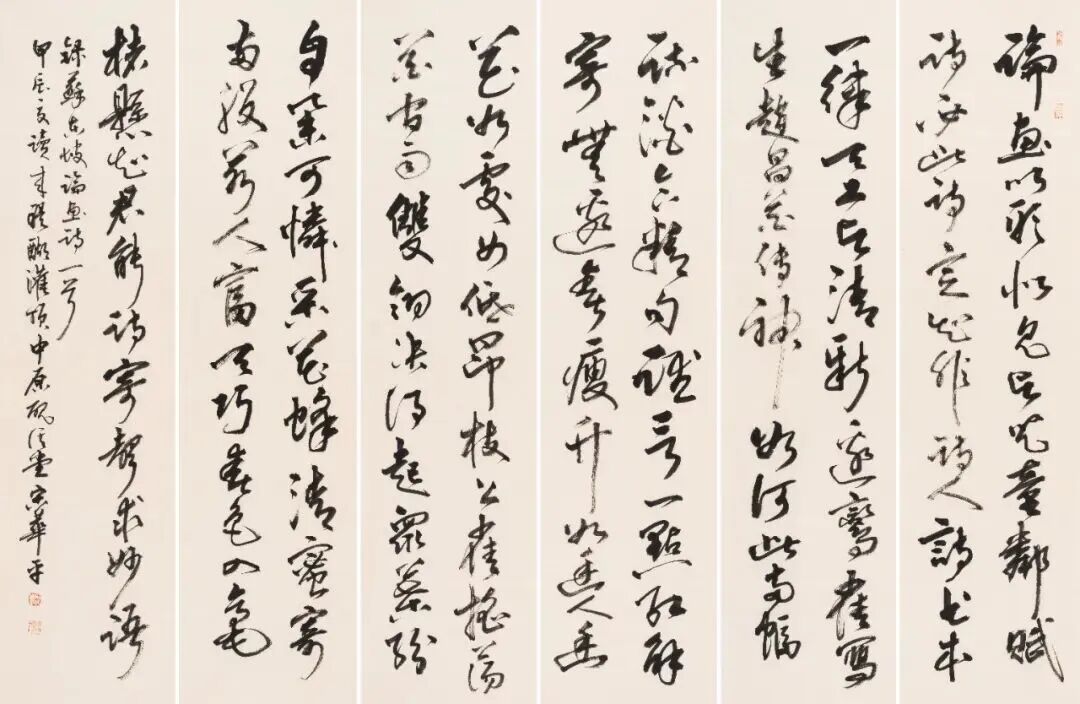 論畫以形似見與兒童鄰賦
詩必此詩定知非詩人詩畫本
一律天工與清新邊鸞雀寫
生趙昌花傳神如何此兩幅
疏澹含精勻誰言一點紅解
寄無邊春瘦竹如幽人幽
花如處女低昂枝上雀搖蕩
花間雨雙翎決將起眾葉紛
自舉可憐采花蜂清蜜寄
兩股若人富天巧春色入毫
楮懸知君能詩寄聲求妙語
錄蘇東坡論畫詩一首
甲辰夏讀來醍醐灌頂中原宋華平